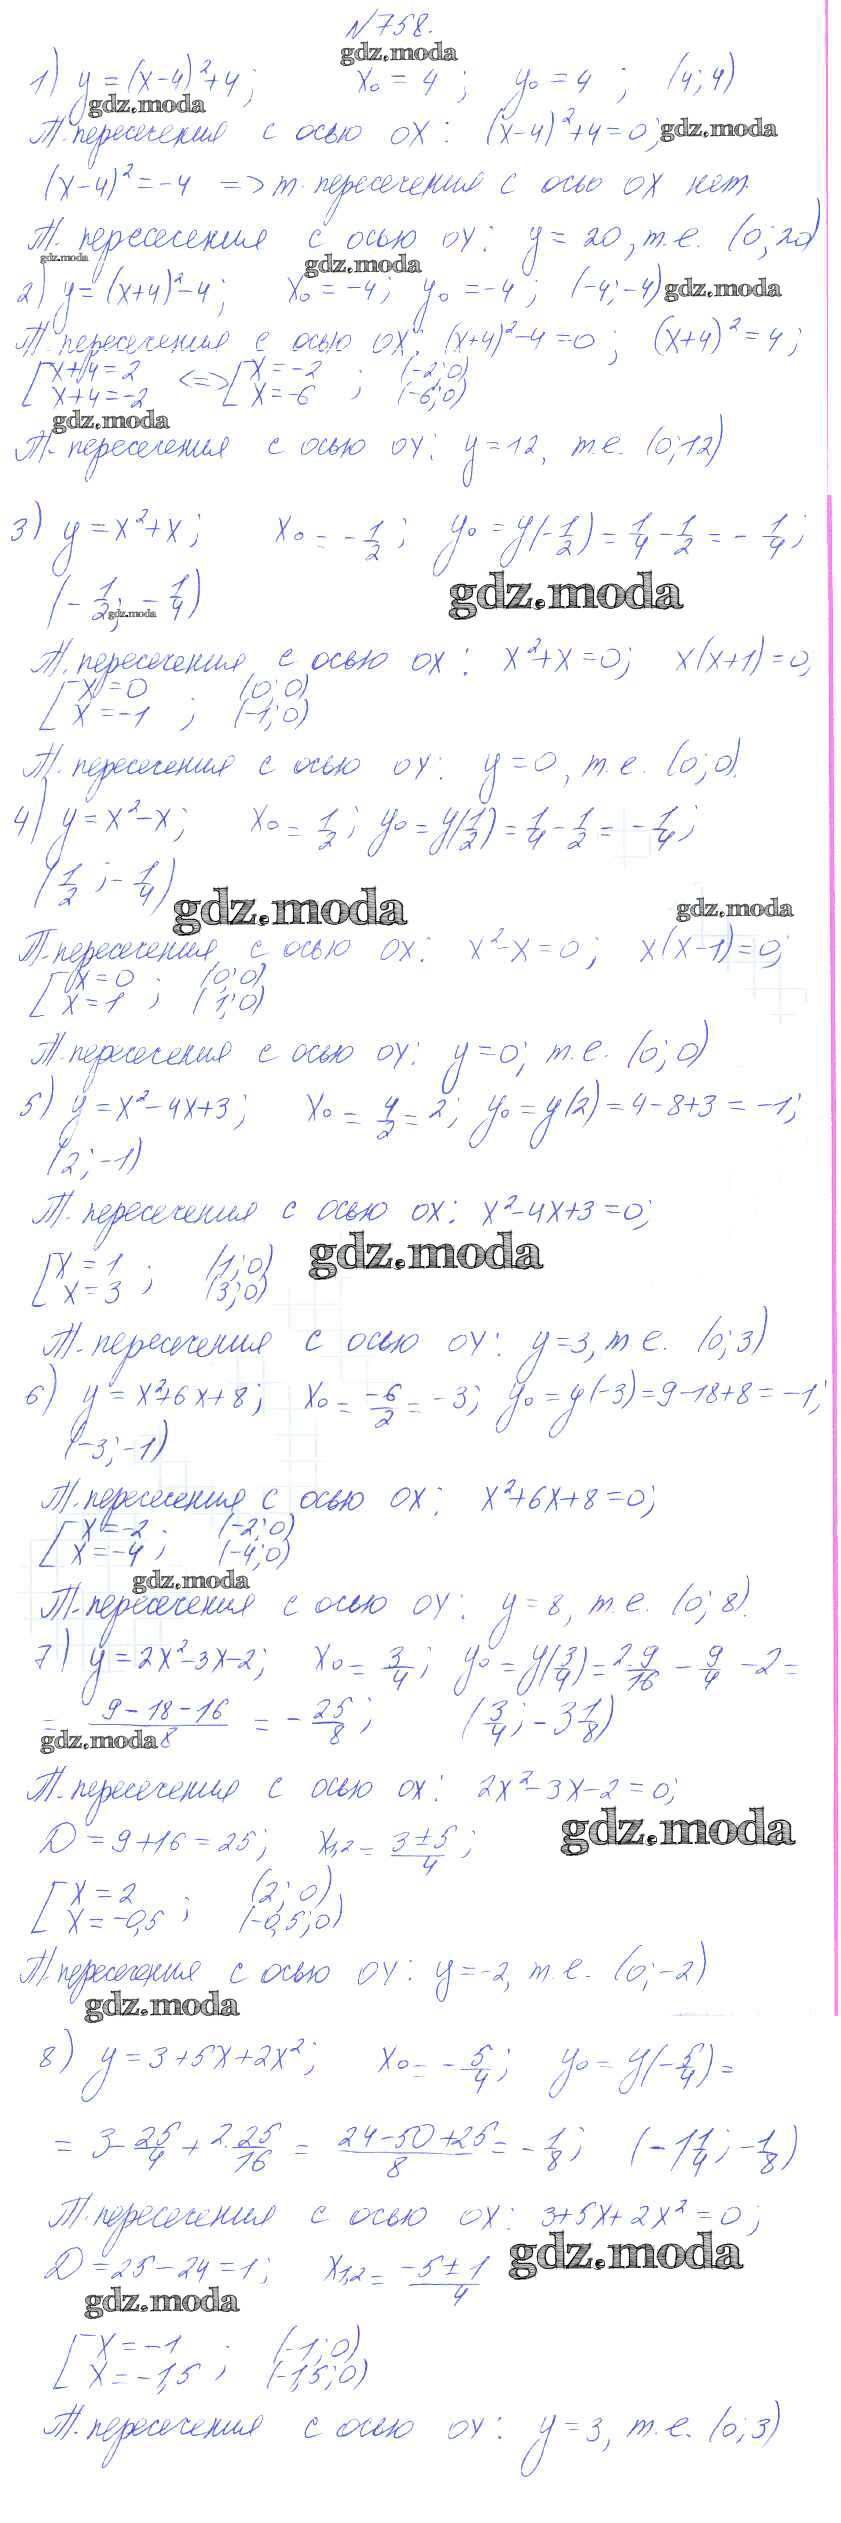 №758.
gdz.moda
1) y = (x-4)²+4; x₀ = 4 ; y₀ = 4 ; (4; 4)
gdz.moda
Т. пересечения с осью OX: (x-4)²+4=0; gdz.moda
(x-4)² = -4 => т. пересечения с осью OX нет.
Т. пересечения с осью OY: y = 20, т.е. (0; 20)
gdz.moda gdz.moda
2) y = (x+4)²-4; x₀ = -4; y₀ = -4 ; (-4; -4) gdz.moda
Т. пересечения с осью OX: (x+4)²-4=0 ; (x+4)² = 4;
[x+4=2 <=> [x=-2 ; (-2; 0)
x+4=-2 x=-6 (-6; 0)
gdz.moda
Т. пересечения с осью OY: y = 12, т.е. (0; 12)
3) y = x²+x; x₀ = -1/2 ; y₀ = y(-1/2) = 1/4 - 1/2 = -1/4;
(-1/2; -1/4) gdz.moda gdz.moda
Т. пересечения с осью OX: x²+x=0; x(x+1)=0;
[x=0 ; (0; 0)
x=-1 (-1; 0)
Т. пересечения с осью OY: y=0, т.е. (0; 0).
4) y = x²-x; x₀ = 1/2; y₀ = y(1/2) = 1/4 - 1/2 = -1/4;
(1/2; -1/4)
gdz.moda gdz.moda
Т. пересечения с осью OX: x²-x=0; x(x-1)=0;
[x=0 ; (0; 0)
x=1 (1; 0)
Т. пересечения с осью OY: y=0; т.е. (0; 0)
5) y = x²-4x+3; x₀ = 4/2 = 2; y₀ = y(2) = 4-8+3 = -1;
(2; -1)
Т. пересечения с осью OX: x²-4x+3=0;
gdz.moda
[x=1 ; (1; 0)
x=3 (3; 0)
Т. пересечения с осью OY: y=3, т.е. (0; 3)
6) y = x²+6x+8; x₀ = -6/2 = -3; y₀ = y(-3) = 9-18+8 = -1;
(-3; -1)
Т. пересечения с осью OX: x²+6x+8=0;
[x=-2 ; (-2; 0)
x=-4 (-4; 0)
gdz.moda
Т. пересечения с осью OY: y=8, т.е. (0; 8).
7) y = 2x²-3x-2; x₀ = 3/4; y₀ = y(3/4) = 2·9/16 - 9/4 - 2 =
= 9-18-16/8 = -25/8; (3/4; -3 1/8)
gdz.moda
Т. пересечения с осью OX: 2x²-3x-2=0;
D = 9+16 = 25; x₁,₂ = 3±5/4 ; gdz.moda
[x=2 ; (2; 0)
x=-0,5 (-0,5; 0)
Т. пересечения с осью OY: y=-2, т.е. (0; -2)
gdz.moda
8) y = 3+5x+2x²; x₀ = -5/4; y₀ = y(-5/4) =
= 3 - 25/4 + 2·25/16 = 24-50+25/8 = -1/8; (-1 1/4; -1/8)
Т. пересечения с осью OX: 3+5x+2x²=0;
D = 25-24 = 1; x₁,₂ = -5±1/4 gdz.moda
gdz.moda
[x=-1 ; (-1; 0)
x=-1,5 (-1,5; 0)
Т. пересечения с осью OY: y=3, т.е. (0; 3)